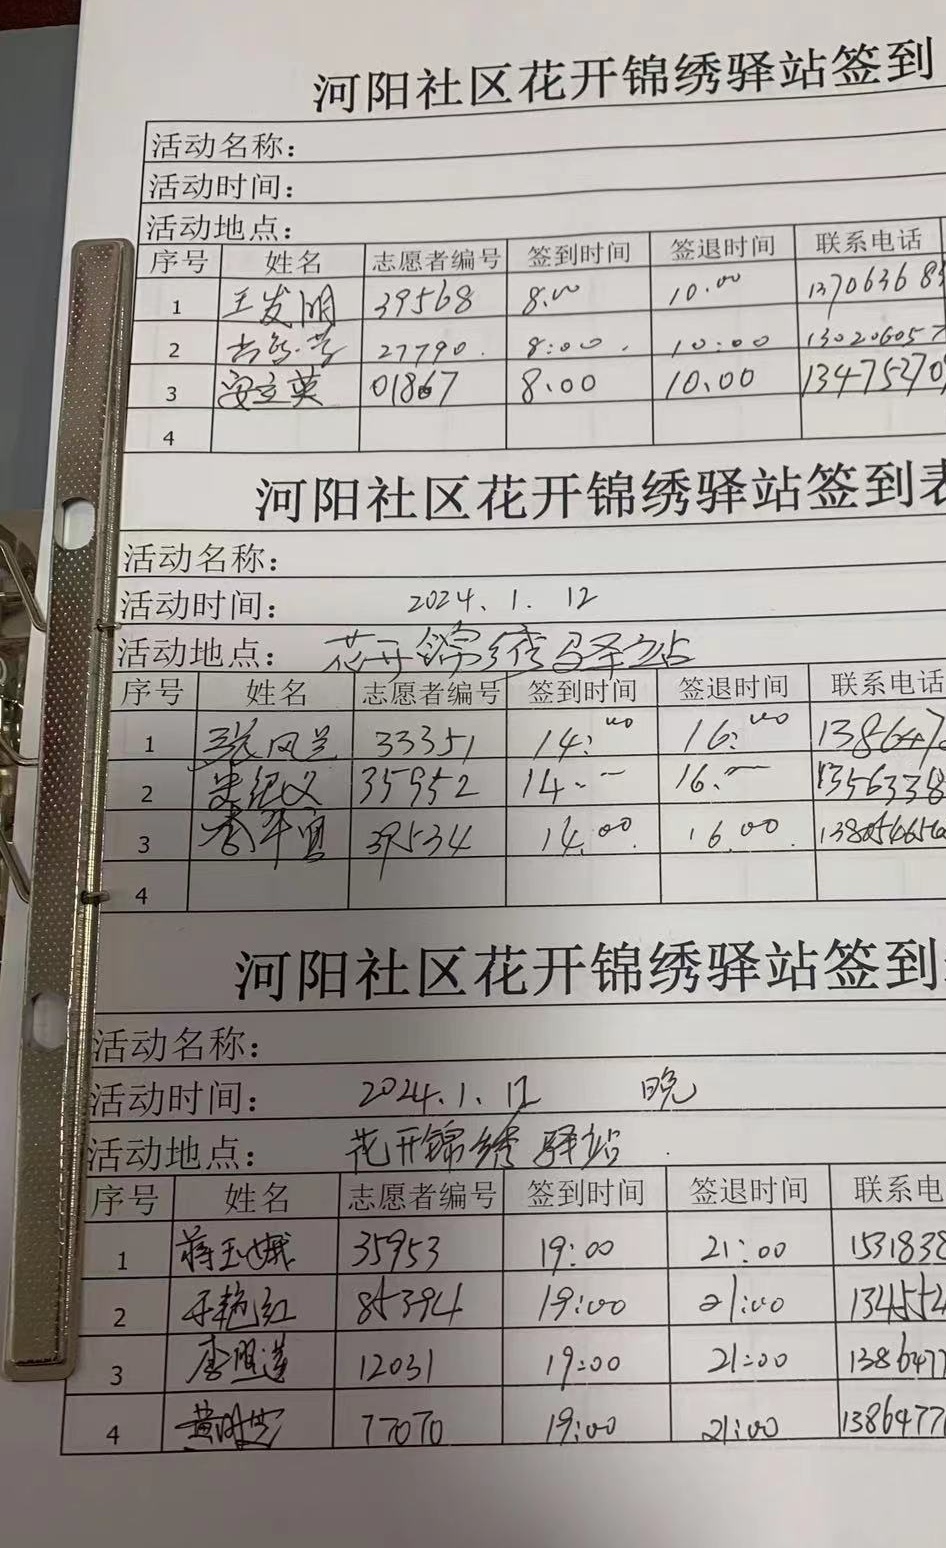 河阳社区花开锦绣驿站签到
活动名称：
活动时间：
活动地点：
序号 姓名 志愿者编号 签到时间 签退时间 联系电话
1 王发明 39568 8:00 10:00 1370636
2 27790 8:00 10:00 130206057
3 安立英 01867 8:00 10:00 13475270
4
河阳社区花开锦绣驿站签到表
活动名称：
活动时间： 2024.1.12
活动地点： 花开锦绣驿站
序号 姓名 志愿者编号 签到时间 签退时间 联系电话
1 张风兰 33351 14:00 16:00 138647
2 35952 14:00 16:00 1356338
3 39534 14:00 16:00
4
河阳社区花开锦绣驿站签到
活动名称：
活动时间： 2024.1.12 晚
活动地点： 花开锦绣驿站
序号 姓名 志愿者编号 签到时间 签退时间 联系电
1 蒋玉娥 35953 19:00 21:00 1531838
2 于艳红 85394 19:00 21:00 134554
3 李照莲 12031 19:00 21:00 1386477
4 77070 19:00 21:00 1386477